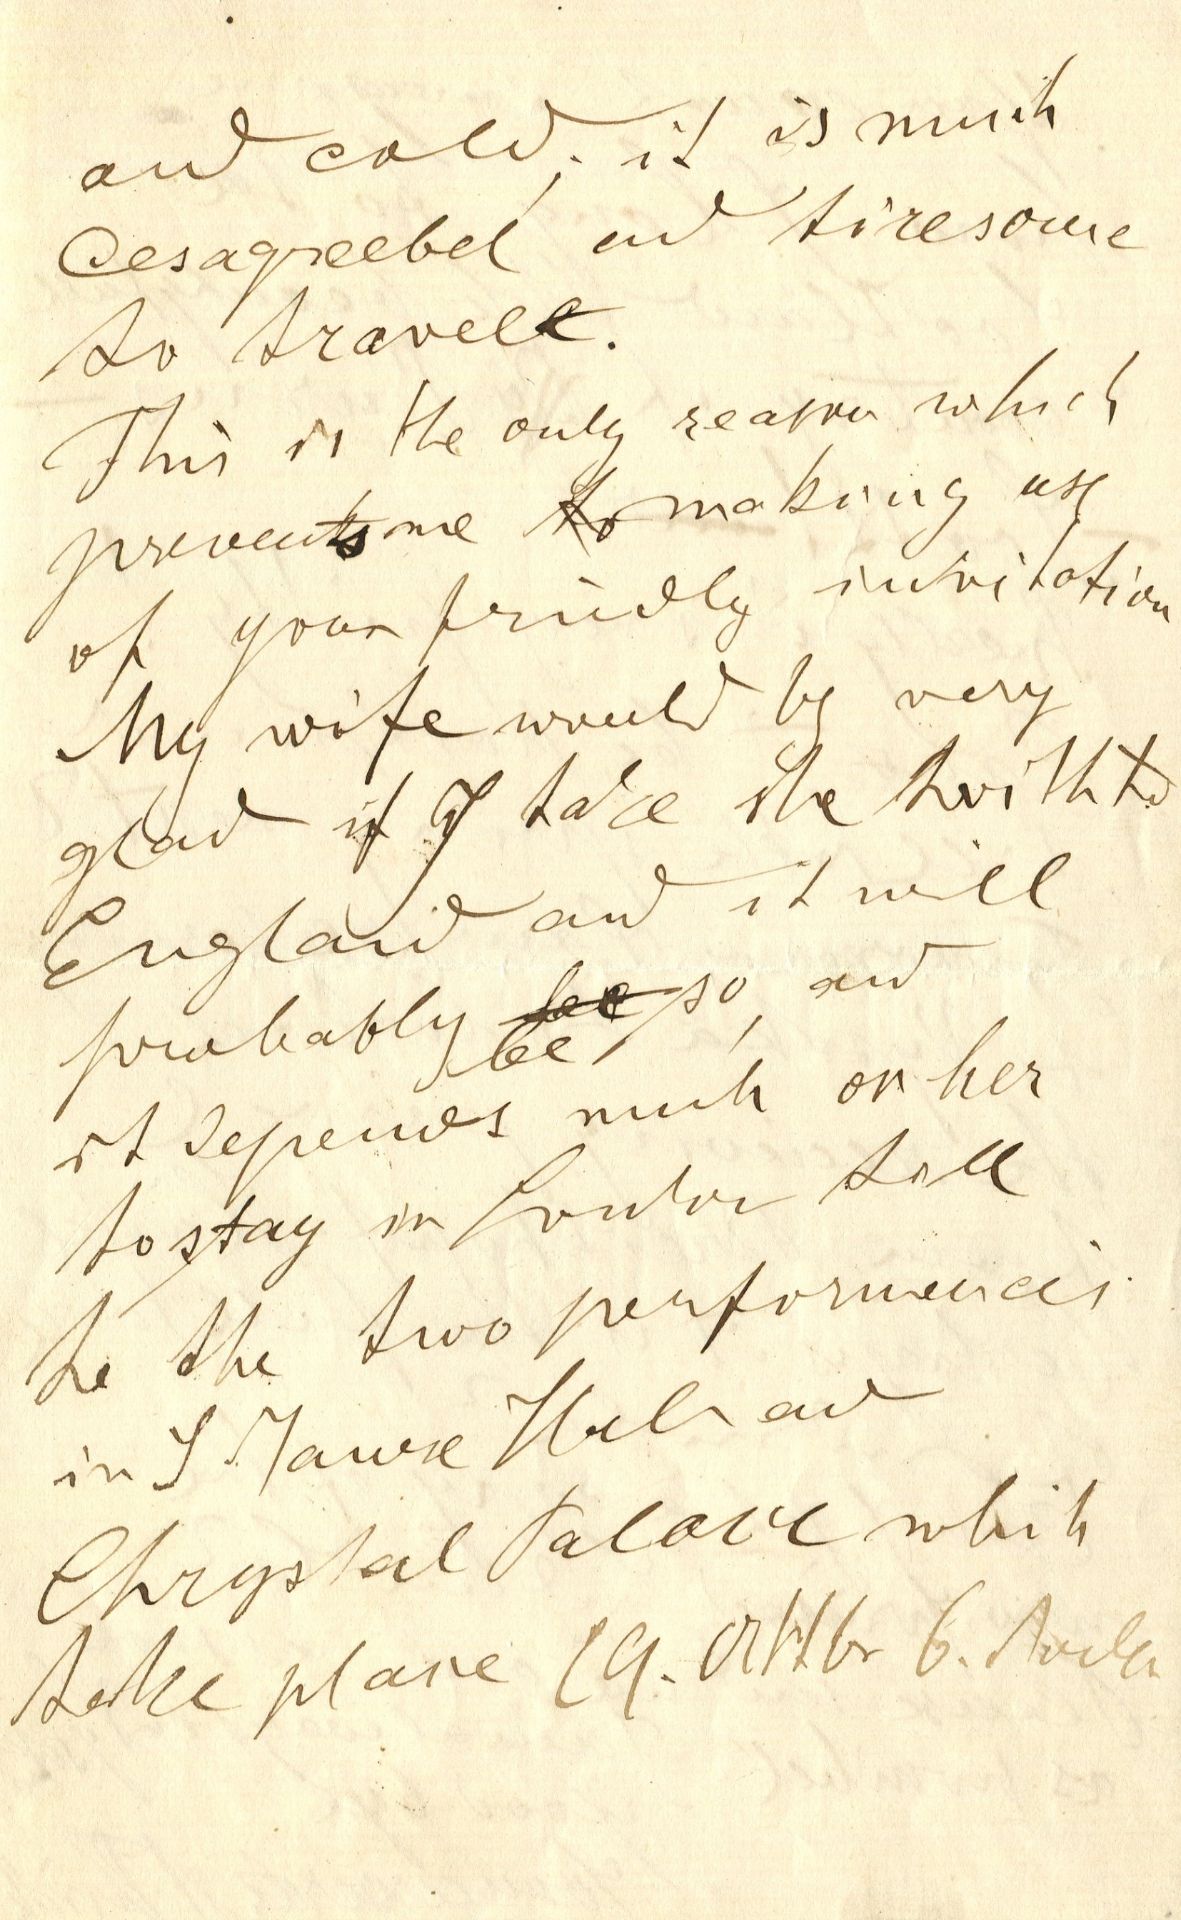 and cold, it is much
desagreebel and tiresome
to travell.
This is the only reason which
prevents me to making use
of your friendly invitation
My wife would be very
glad if I take she with to
England and it will
probably be be so, and
it depends much on her
to stay in London till
to the two performencis
in S James Hal and
Chrystal Palace which
take place 29. Oktbr 6.